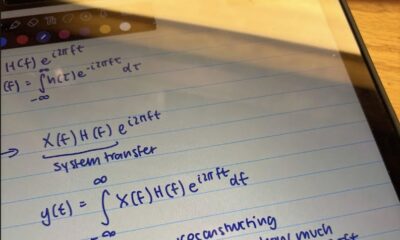 H(f) e^{i2πft}
(f) = ∫_{-∞}^{∞} h(τ) e^{-i2πfτ} dτ
→ X(f) H(f) e^{i2πft}
system transfer
y(t) = ∫_{-∞}^{∞} X(f) H(f) e^{i2πft} df
reconstructing
how much